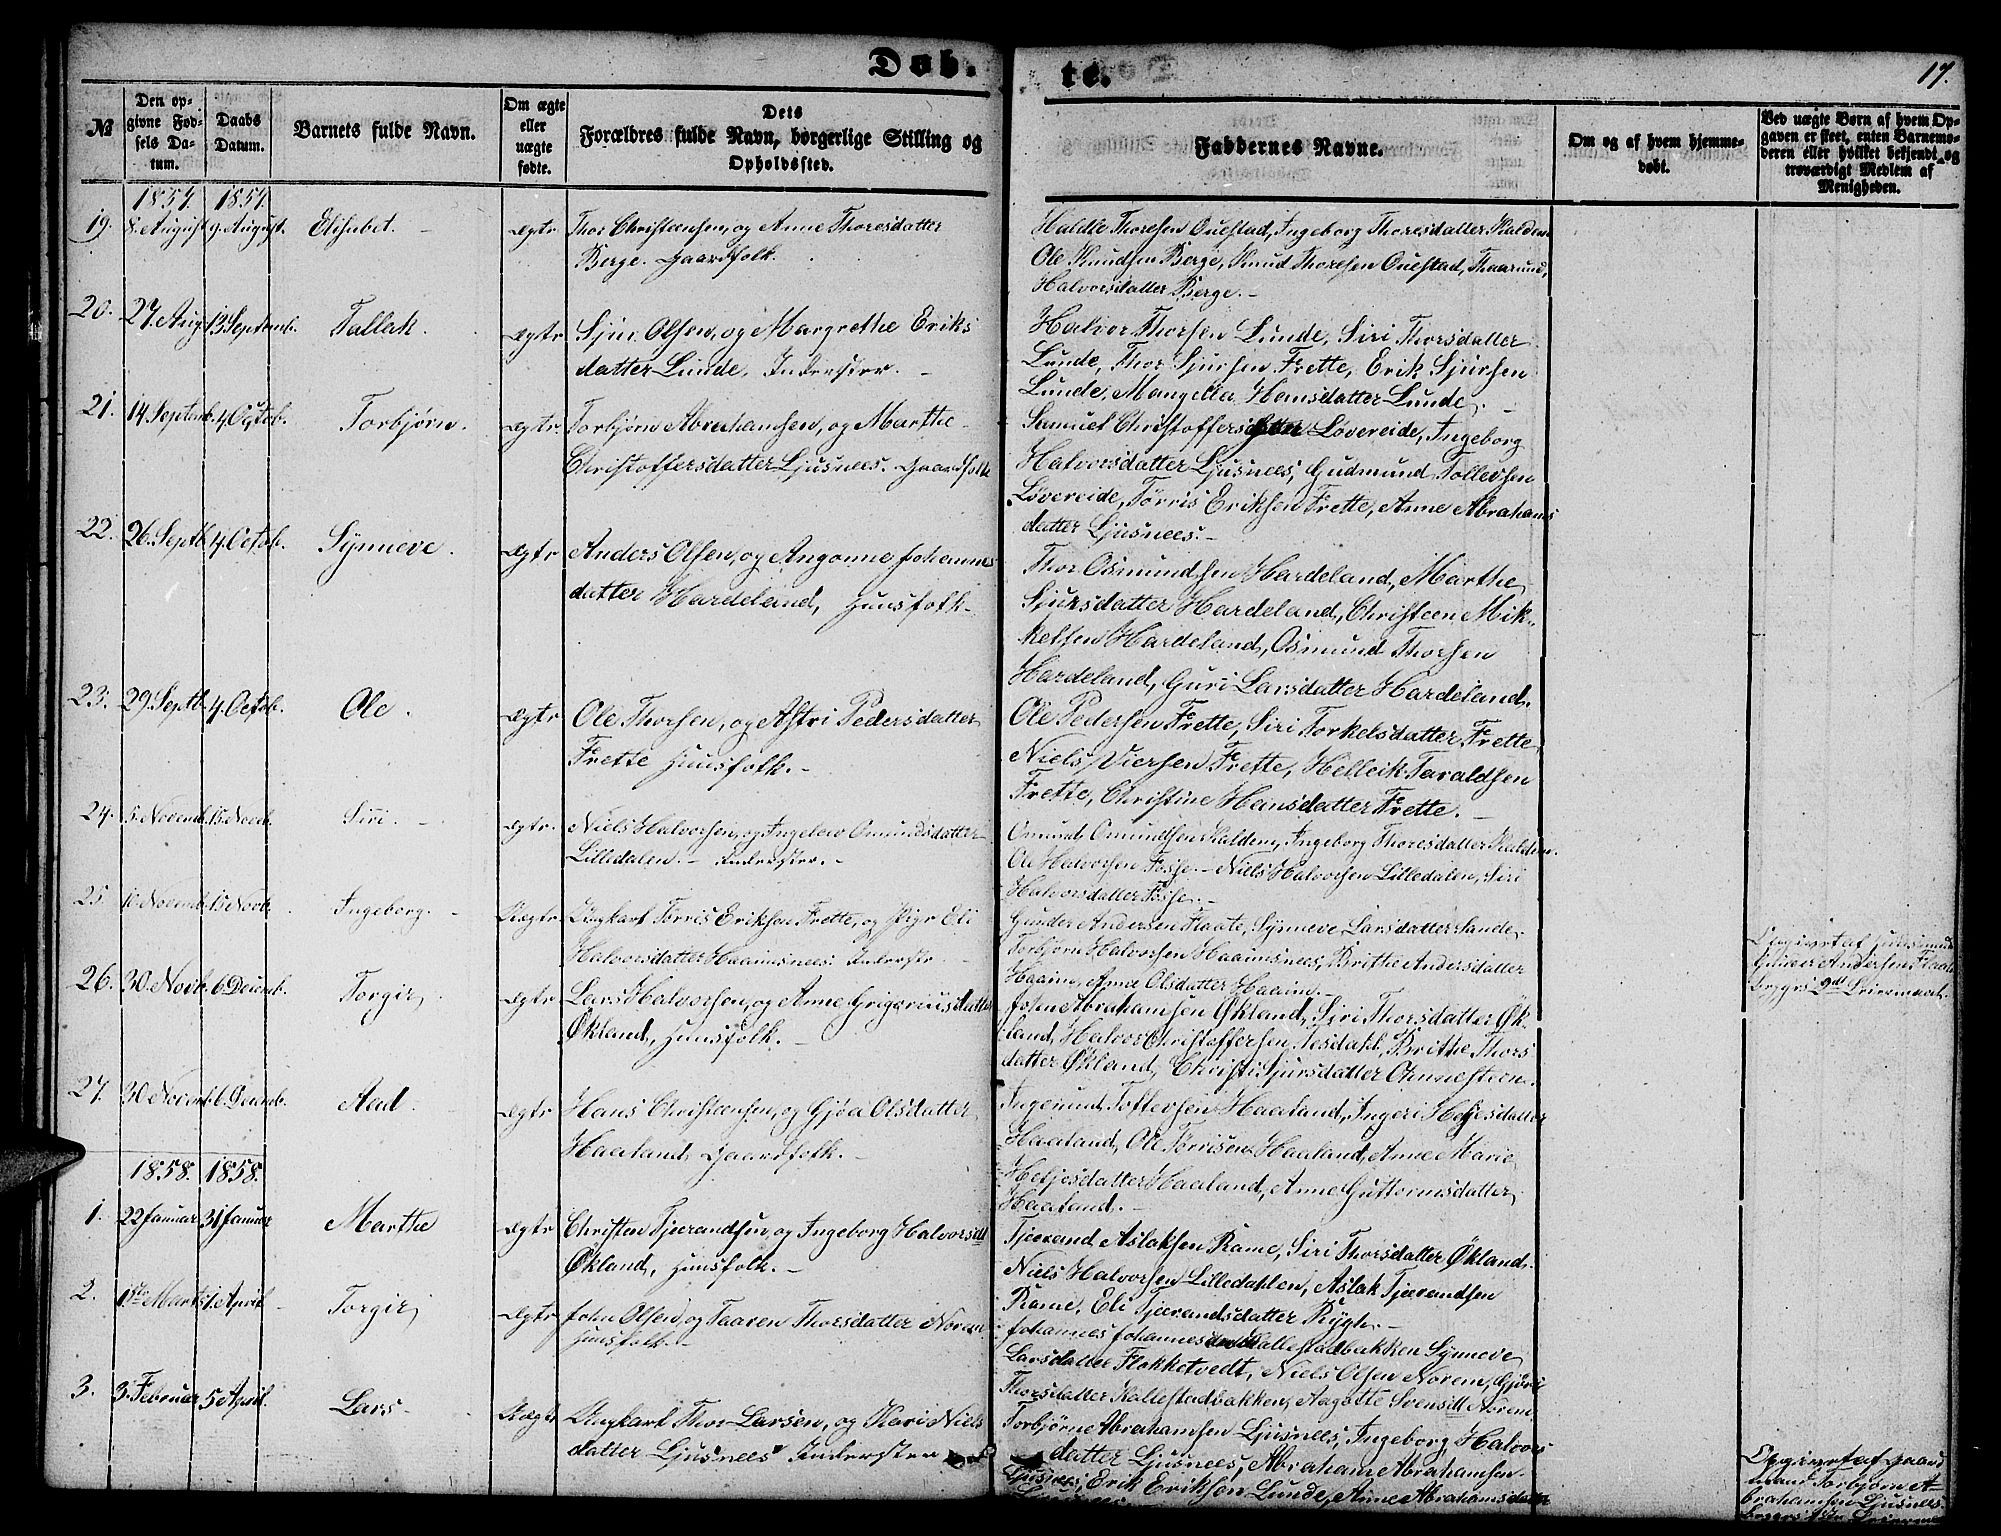 Døb. te.
17.
№
Den opgivne Fødsels Datum.
Daabs Datum.
Barnets fulde Navn.
Om ægte eller uægte fødte.
Dets Forældres fulde Navn, borgerlige Stilling og Opholdssted.
Faddernes Navne.
Om og af hvem hjemmedøbt.
Ved uægte Børn af hvem Opgaven er skeet, enten Barnemoderen eller hvilket bekjendt og troværdigt Medlem af Menigheden.
1857. 1857.
19. 8. August 9. August. Elisabet. - Ægte Thor Christensen, og Anne Thoresdatter
Berge. Gaardfolk.
Haldle Thoresen Ouestad, Ingeborg Thoresdatter Kalden
Ole Knudsen Berge, Knud Thoresen Ouestad,
Halvorsdatter Berge. -
20. 27. Aug. 13. Septemb. Tallak. Ægte Sjur Olsen, og Margrethe Eriks
datter Lunde, Inderster. -
Halvor Thorsen Lunde, Siri Thorsdatter
Lunde, Thor Sjursen Frette, Erik Sjursen
Lunde, Mangella Hansdatter Lunde. -
21. 14. Septemb. 4. Octob. Torbjørn. Ægte Torbjørn Abrahamsen, og Marthe
Christoffersdatter Ljusnees. Gaardfolk
Samuel Christoffersen Løvereide, Ingeborg
Halvorsdatter Ljusnees, Gudmund Tollevsen
Løvereide, Tørris Eriksen Frette, Anne Abrahams
datter Ljusnees. -
22. 26. Septb. 4. Octob. Synneve. Ægte Anders Olsen, og Angonne Johannes
datter Hardeland, Huusfolk. -
Thor Osmundsen Hardeland, Marthe
Sjursdatter Hardeland, Christeen Mik-
kelsen Hardeland, Osmund Thorsen
Hardeland, Guri Larsdatter Hardeland.
23. 29. Septb. 4. Octob. Ole. Ægte Ole Thorsen, og Astri Pedersdatter
Frette Huusfolk. -
Ole Pedersen Frette, Siri Torkelsdatter Frette
Niels Viersen Frette, Helleik Taraldsen
Frette, Christine Hansdatter Frette. -
24. 5. Novemb. 15. Novb. Siri. - Ægte. Niels Halvorsen, og Ingeleiv Omundsdatter
Lilledalen. - Inderster. -
Omund Omundsen Kalden, Ingeborg Thoresdatter Kalden.
Ole Halvorsen Fosse. - Niels Halvorsen Lilledalen, Siri
Halvorsdatter Fosse. -
25 10. Novemb. 15 Novb. Ingeborg. - Uægte Ungkarl Tørris Eriksen Frette, og Pige Eli
Halvorsdatter Haaimsnees. Inderster. -
Gunder Andersen Flaate, Synneve Larsdatter Sande.
Torbjørn Halvorsen Haaimsnees, Brithe Andersdatter
Haaim, Anna Olsdatter Haaim. -
Gunder Andersen Flaate
26. 30. Novb. 6. Decemb. Torgir, Ægte Lars Halvorsen, og Anne Grigoriusdatter
Økland, Huusfolk. -
John Abrahamsen Økland, Siri Thorsdatter Øk-
land, Halvor Christoffersen Nesdahl, Brithe Thors
datter Økland, Christi Sjursdatter
27. 30 Novemb. 6. Decemb. Aad. - Ægte Hans Christensen, og Gjøa Olsdatter
Haaland, Gaardfolk. -
Ingemund Tollevsen Haaland, Ingeri Heljesdatter
Haaland, Ole Tørrisen Haaland, Anne Marie
Heljesdatter Haaland, Anne Guttormsdatter
Haaland. -
1858. 1858.
1. 22 Januar 31 Januar Marthe Ægte Christen Tjerandsen, og Ingeborg Halvorsdtt
Økland, Huusfolk. -
Tjerand Aslaksen Rame, Siri Thorsdatter Økland.
Niels Halvorsen Lilledahlen, Aslak Tjerandsen
Rame, Eli Tjerandsdatter Rygh. -
2. 1ste Marts 1. April - Torgir, Ægte John Olsen, og Taaren Thorsdatter Norem
Huusfolk. -
Johannes Johannesen Kallestadbakken Synneve
Larsdatter Flokketvedt, Niels Olsen Norem, Gjøri
Thorsdatter Kallestadbakken, Aagotte Svensdtt Norem
3. 3. Februar 5 April. Lars. Uægte Ungkarl Thor Larsen, og Kari Niels
datter Ljusnees Inderster
Torbjørn Abrahamsen Ljusnees, Ingeborg Halvors
datter Ljusnees, Abraham Abrahamsen
Ljusnees, Erik Eriksen Lunde, Anne Abrahamsdatter
Opgivet af Gaard
mand Torbjørn A-
brahamsen Ljusnees